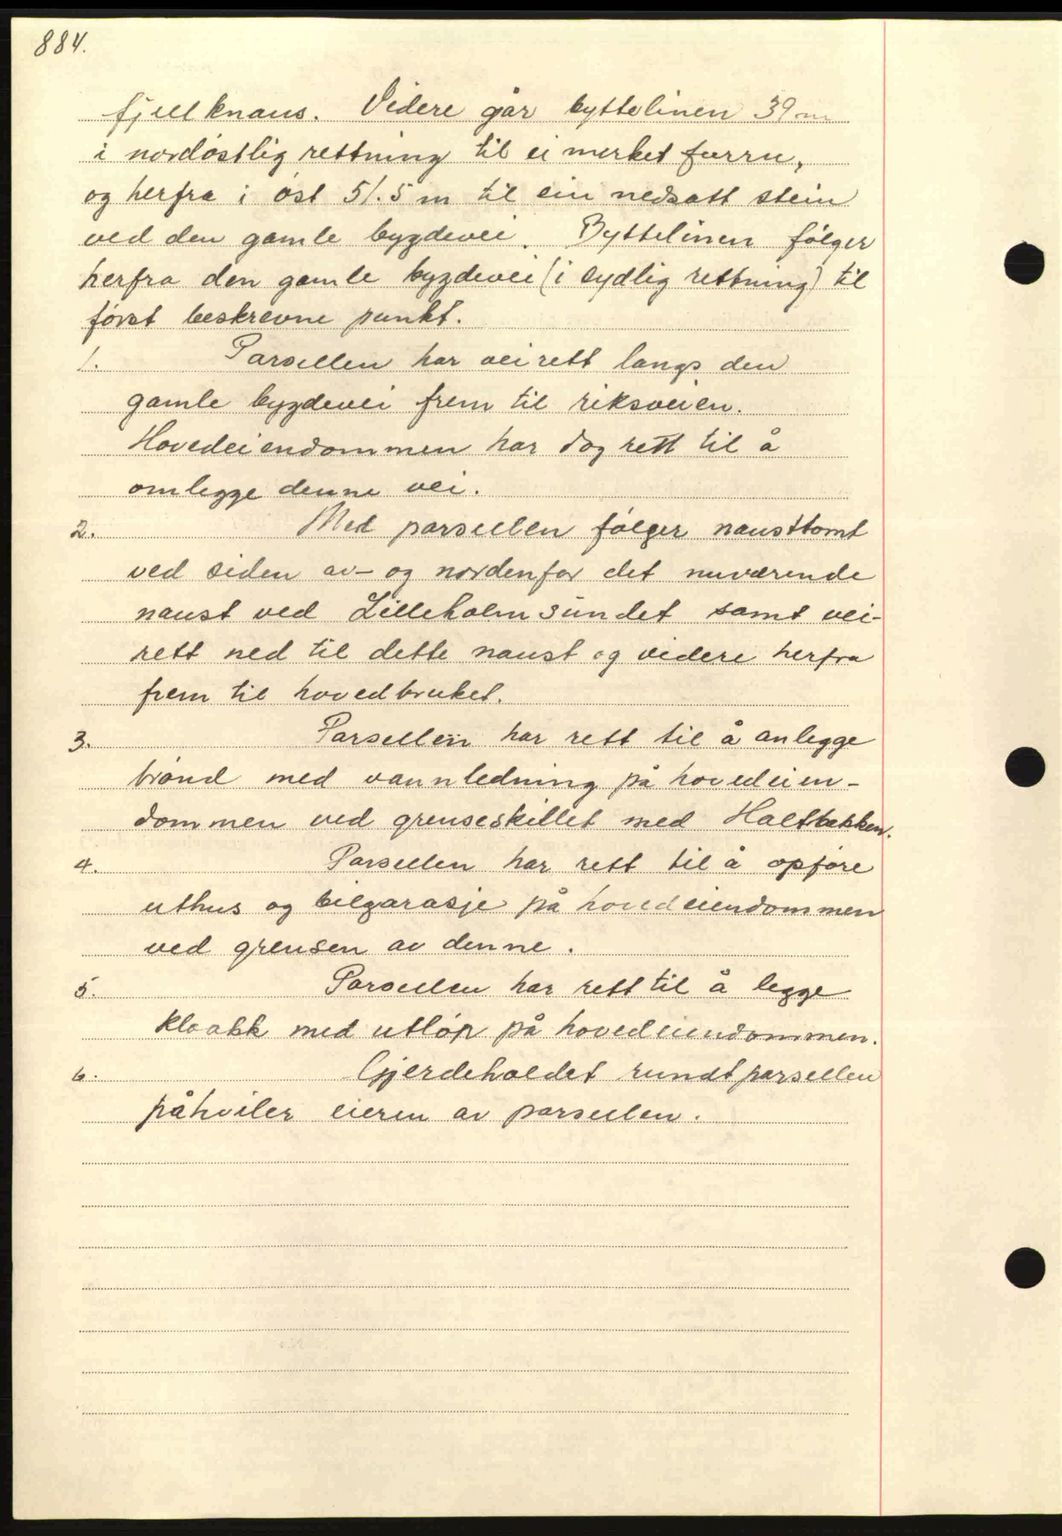 884.
fjellknaus. Videre går byttelinen 39 m
i nordøstlig rettning til ei merket furru,
og herfra i øst 51.5 m til ein nedsatt stein
ved den gamle bygdevei. Byttelinen følger
herfra den gamle bygdevei (i sydlig rettning) til
først beskrevne punkt.
1. Parsellen har veirett langs den
gamle bygdevei frem til riksveien.
Hovedeiendommen har dog rett til å
omlegge denne vei.
2. Med parsellen følger nausttomt
ved siden av- og nordenfor det nuværende
naust ved Lilleholmsundet samt vei-
rett ned til dette naust og videre herfra
frem til hovedbruket.
3. Parsellen har rett til å anlegge
brønd med vannledning på hovedeien-
dommen ved grenseskillet med Haltbakken.
4. Parsellen har rett til å opføre
uthus og bilgarasje på hovedeiendommen
ved grensen av denne.
5. Parsellen har rett til å legge
kloakk med utløp på hovedeiendommen.
6. Gjerdeholdet rundt parsellen
påhviler eieren av parsellen.